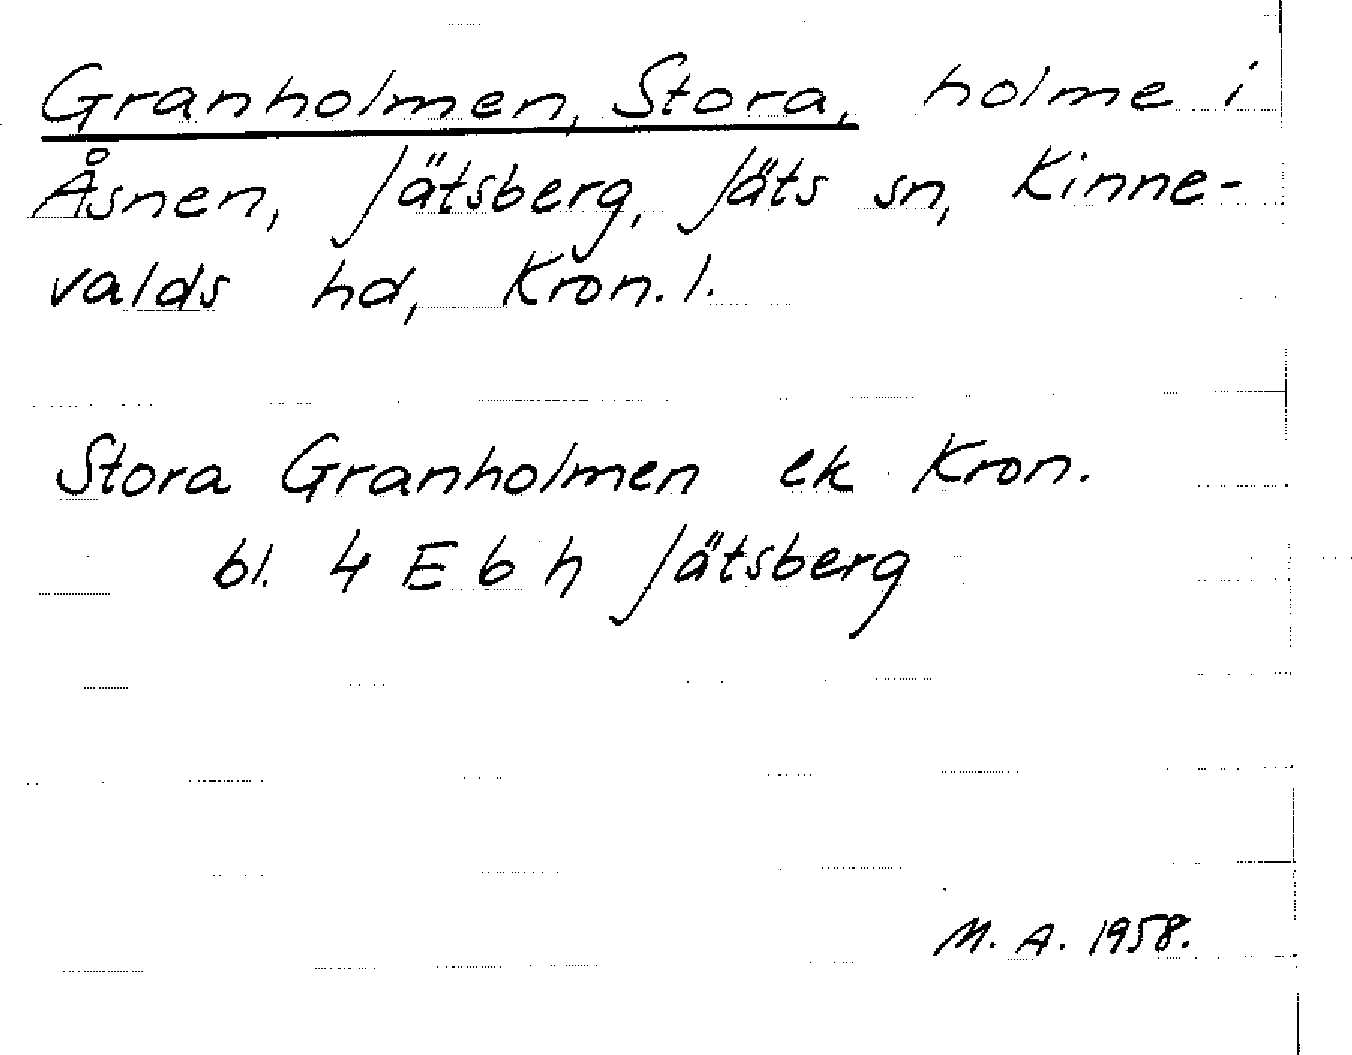 Granholmen, Stora, holme i
Åsnen, Jätsberg, Jäts sn, Kinne-
valds hd, Kron. l.
Stora Granholmen ek Kron.
bl. 4 E b h Jätsberg
M. A. 1958.